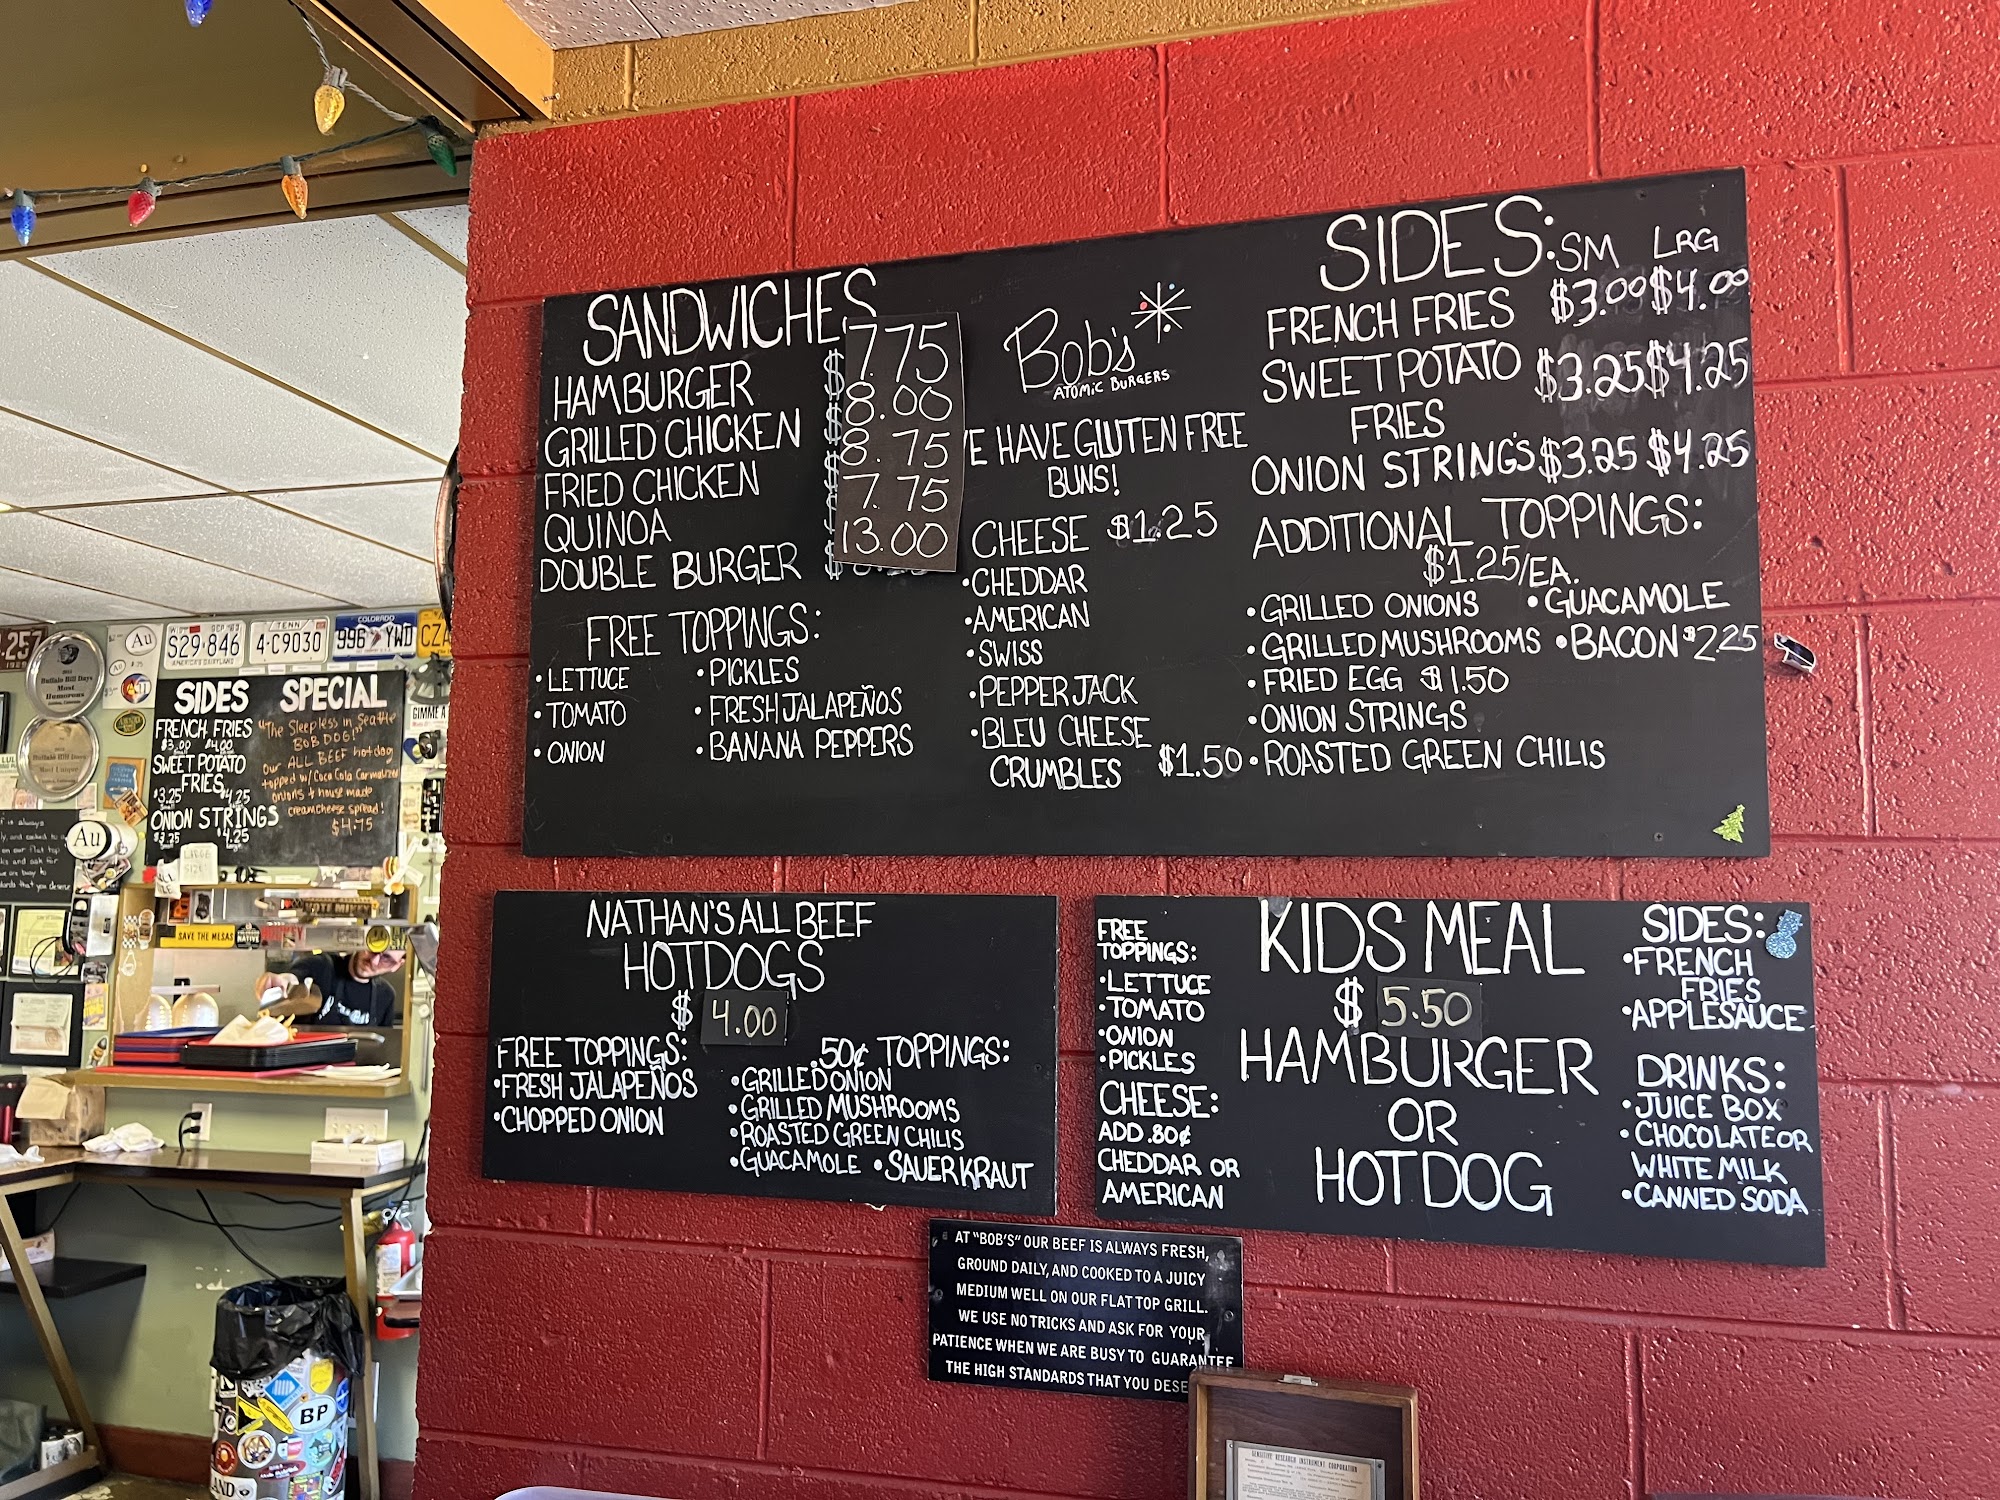 SANDWICHES
HAMBURGER $7.75
GRILLED CHICKEN $8.00
FRIED CHICKEN 8.75
QUINOA 7.75
DOUBLE BURGER $13.00
FREE TOPPINGS:
•LETTUCE
•TOMATO
•ONION
•PICKLES
•FRESH JALAPEÑOS
•BANANA PEPPERS
Bob's
ATOMIC BURGERS
E HAVE GLUTEN FREE
BUNS!
CHEESE $1.25
•CHEDDAR
•AMERICAN
•SWISS
•PEPPER JACK
•BLEU CHEESE
CRUMBLES $1.50
SIDES: SM LRG
FRENCH FRIES $3.00 $4.00
SWEET POTATO $3.25 $4.25
FRIES
ONION STRINGS $3.25 $4.25
ADDITIONAL TOPPINGS:
$1.25/EA.
•GRILLED ONIONS •GUACAMOLE
•GRILLED MUSHROOMS •BACON $2.25
•FRIED EGG $1.50
•ONION STRINGS
•ROASTED GREEN CHILIS
NATHAN'S ALL BEEF
HOTDOGS
$ 4.00
FREE TOPPINGS:
•FRESH JALAPEÑOS
•CHOPPED ONION
.50¢ TOPPINGS:
•GRILLED ONION
•GRILLED MUSHROOMS
•ROASTED GREEN CHILIS
•GUACAMOLE •SAUERKRAUT
FREE
TOPPINGS:
•LETTUCE
•TOMATO
•ONION
•PICKLES
CHEESE:
ADD .80¢
CHEDDAR OR
AMERICAN
KIDS MEAL
$ 5.50
HAMBURGER
OR
HOTDOG
SIDES:
•FRENCH
FRIES
•APPLESAUCE
DRINKS:
•JUICE BOX
•CHOCOLATE OR
WHITE MILK
•CANNED SODA
AT "BOB'S" OUR BEEF IS ALWAYS FRESH,
GROUND DAILY, AND COOKED TO A JUICY
MEDIUM WELL ON OUR FLAT TOP GRILL.
WE USE NO TRICKS AND ASK FOR YOUR
PATIENCE WHEN WE ARE BUSY TO GUARANTEE
THE HIGH STANDARDS THAT YOU DESE
SENSITIVE RESEARCH INSTRUMENT CORPORATION
SIDES
FRENCH FRIES
$3.00 $4.00
SWEET POTATO
FRIES
$3.25 $4.25
ONION STRINGS
$3.25 $4.25
SPECIAL
"The Sleepless in Seattle
BOB DOG!"
our ALL BEEF hotdog
topped w/ Coca Cola Carmalized
onions & house made
creamcheese spread!
$4.75
S29·846
AMERICA'S DAIRYLAND
TENN
4·C9030
COLORADO
996 YWD
CZA
Au
Au
Buffalo Bill Days
Most
Humorous
GIMME A
SAVE THE MESAS
NATIVE
VOTE MIKEY
BP
AND